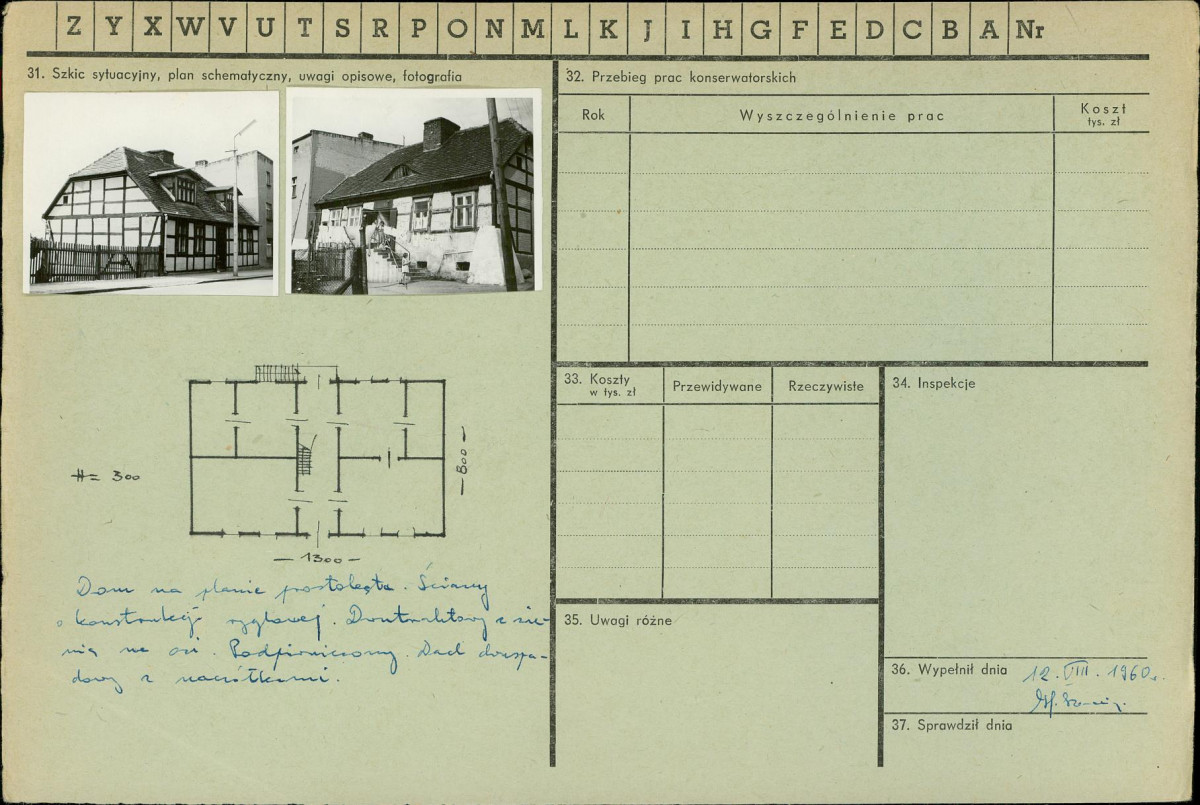 Z Y X W V U T S R P O N M L K J I H G F E D C B A Nr
31. Szkic sytuacyjny, plan schematyczny, uwagi opisowe, fotografia
H = 300
— 800 —
— 1300 —
Dom na planie prostokąta. Ściany
o konstrukcji ryglowej. Dwutraktowy z sie-
nią na osi. Podpiwniczony. Dach dwuspa-
dowy z naczółkami.
32. Przebieg prac konserwatorskich
Rok Wyszczególnienie prac Koszt
tys. zł
33. Koszty
w tys. zł
Przewidywane Rzeczywiste
34. Inspekcje
35. Uwagi różne
36. Wypełnił dnia 12. VIII. 1960 r.
37. Sprawdził dnia